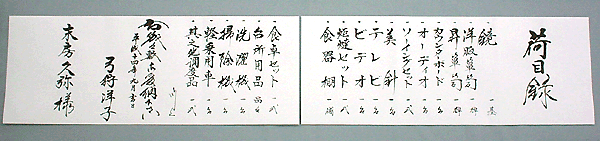 荷目録
一 鏡 一基
一 洋服箪笥 一棹
一 昇箪笥 一棹
一 カウンターボード 一式
一 オーディオ 一台
一 ソーイングセット 一式
一 テレビ 一台
一 ビデオ 一台
一 炬燵セット 一式
一 食器棚 一棚
一 食卓セット 一式
一 台所用品
一 洗濯機 一台
一 掃除機 一台
一 軽乗用車 一台
一 其之他調度品 一式
平成十四年九月吉日
弓狩洋子
末房久弥様